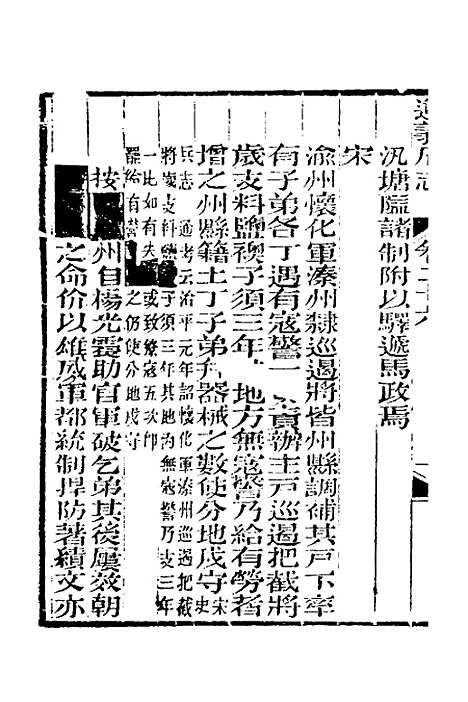 遵義府志 卷二十六
汛塘隘諸制附以驛遞馬政焉
宋
渝州懷化軍溱州隸巡遏將皆州縣調補其戶下率
有子弟各丁遇有寇警一 責辦主戶巡遏把截將
歲支料鹽襖子須三年 地方無寇警乃給有勞者
增之州縣籍土丁子弟 器械之數使分地戍守宋史
兵志 通考云治平元年詔懷化軍溱州巡遏把截
將歲支料鹽 子須三年其地內無寇警乃支三年
一比如有夫 或致療寇五次卽
罷給有警 之仍使分地戍守
按 州自楊光震助官軍破乞弟其後屢效朝
之命价以雄威軍都統制捍防著績文亦